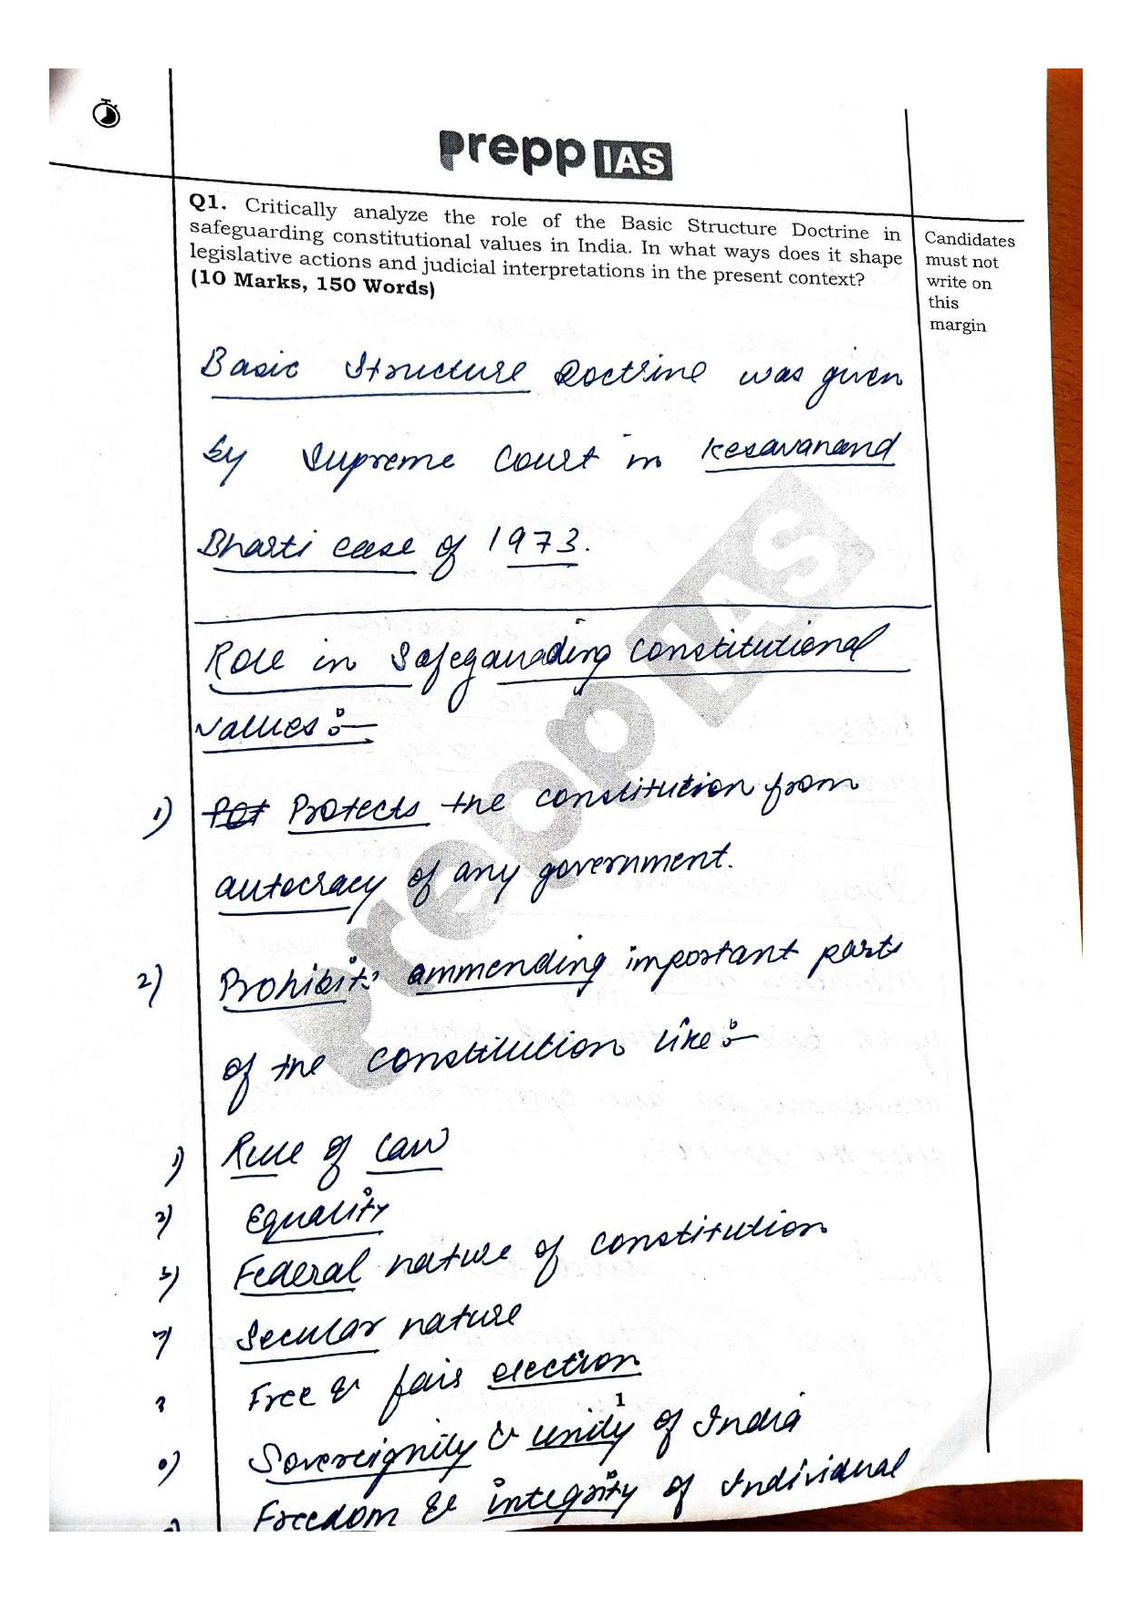 prepp IAS
Q1. Critically analyze the role of the Basic Structure Doctrine in
safeguarding constitutional values in India. In what ways does it shape
legislative actions and judicial interpretations in the present context?
(10 Marks, 150 Words)
Candidates
must not
write on
this
margin
Basic Structure Doctrine was given
by Supreme Court in Kesavanand
Bharti case of 1973.
Role in Safeguarding constitutional
values :-
1) Protects the constitution from
autocracy of any government.
2) Prohibits ammending important parts
of the constitution like :-
1) Rule of Law
2) Equality
3) Federal nature of constitution
Secular nature
Free & fair election
1
Sovereignity & unity of India
Freedom & integrity of Individual
prepp IAS